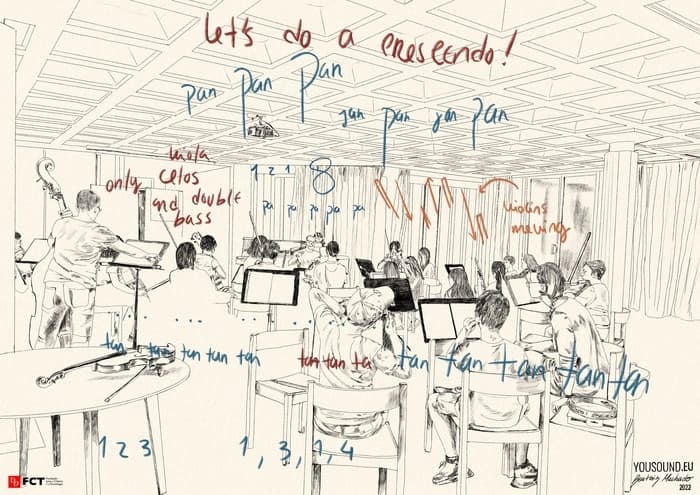 Let's do a crescendo!
pan Pan Pan
pan pan pan pan
viola
only celos
and double
bass
1 2 1 8
pa pa pa pa pa
violins
moving
tan tan tan tan tan
tan tan ta
tan tan tan tan tan
1 2 3
1, 3, 1, 4
FCT
YOUSOUND.EU
2022